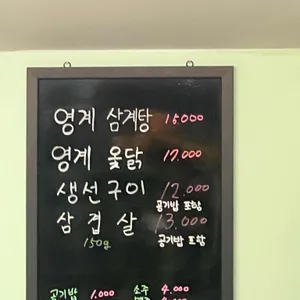 영계 삼계탕 15.000
영계 옻닭 17.000
생선구이 12.000
공기밥 포함
삼겹살 13.000
150g 공기밥 포함
공기밥 1.000 소주 4.000